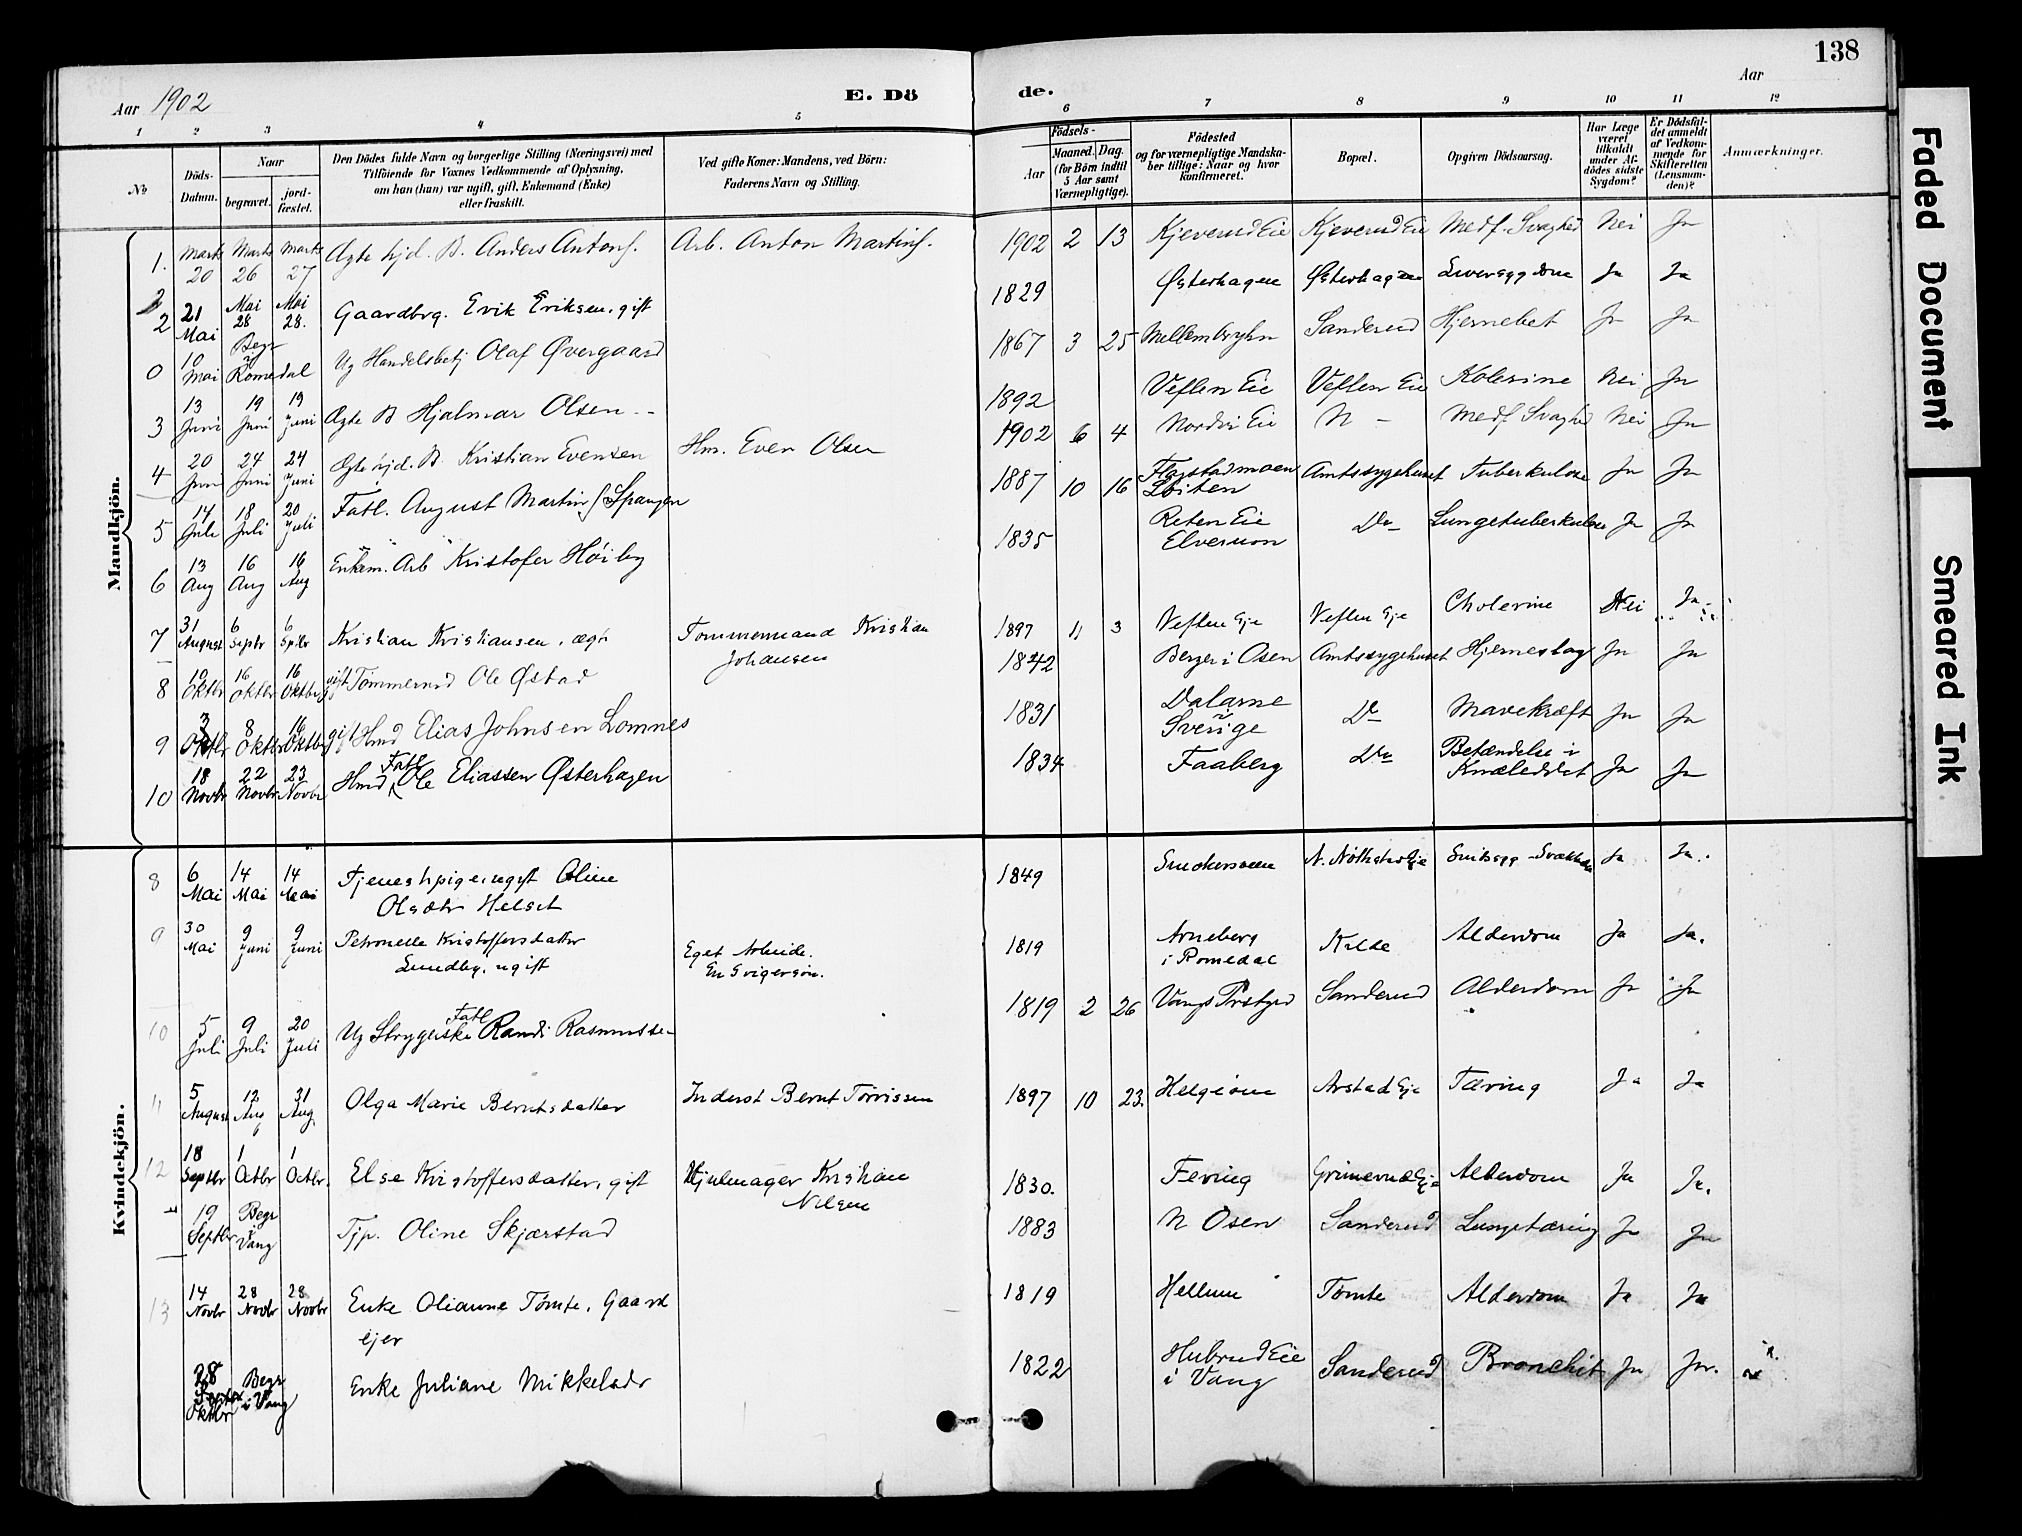 138
Aar 1902
E. Dö
de.
Aar
1 2 3 4 5 6 7 8 9 10 11 12
No
Döds-Datum.
Naar
begravet.
jord-fæstet.
Den Dödes fulde Navn og borgerlige Stilling (Næringsvei) med
Tilföiende for Voxnes Vedkommende af Oplysning,
om han (hun) var ugift, gift, Enkemand (Enke)
eller fraskilt.
Ved gifte Koner: Mandens, ved Börn:
Faderens Navn og Stilling.
Födsels-
Aar
Maaned. Dag.
(for Börn indtil
5 Aar samt
Værnepligtige).
Födested
og for værnepligtige Mandska-
ber tillige: Naar og hvor
konfirmeret.
Bopæl.
Opgiven Dödsaarsag.
Har Læge
været
tilkaldt
under Af-
dödes sidste
Sygdom?
Er Dödsfal-
det anmeldt
af Vedkom-
mende for
Skifteretten
(Lensman-
den)?
Anmærkninger.
Mandkjön.
1. Marts 20 Marts 26 Marts 27 Ægte hjd. B. Anders Antons. Arb. Anton Martins. 1902 2 13 Kjeverud Eie Kjeverud Eie Medf. Svaghed Nei Ja
2 21 Mai Mai 28 Mai 28. Gaardbrg. Erik Eriksen, gift 1829 Østerhagen Østerhagen Ja Ja
0 10 Mai Begr i Romedal Ug Handelsbetj Olaf Øvergaard 1867 3 25 Sanderud Ja Ja
3 13 Juni 19 Juni 19 Juni Ægte B Hjalmar Olsen 1892 Veflen Eie Veflen Eie Kolerine Nei Ja
4 20 Juni 24 Juni 24 Juni Kristian Evensen Hm. Even Olsen 1902 6 4 Nordvi Eie N – Medf. Svaghed Nei Ja
5 14 Juli 18 Juli 20 Juli Fatl. August Martins. Spangen 1887 10 16 Flagstadmoen
Løiten Amtssygehuset Tuberkulose Ja Ja
6 13 Aug 16 Aug 16 Aug Enkem. Arb Kristofer Høiby 1835 Reten Eie
Elverum Do Lungetuberkulose Ja Ja
7 31 August 6 Septbr 6 Sptbr Kristian Kristiansen, ægte Tømmermand Kristian
Johansen 1897 11 3 Veflen Eje Veflen Eje Cholerine Nei Ja
8 10 Oktbr 16 Oktbr 16 Oktbr gift Tømmermd Ole Østad 1842 Berger i Osen Amtssygehuset Hjerneslag Ja Ja
9 3 Oktbr 8 Oktbr 16 Oktbr gift Hmd Elias Johnsen Lomnes 1831 Dalarne
i Sverige Do Mavekræft Ja Ja
10 18 Novbr 22 Novbr 23 Novbr Hmd Fatl Ole Eliassen Østerhagen 1834 Faaberg Do Betændelse i
Knæleddet Ja Ja
Kvindekjön.
8 6 Mai 14 Mai 14 Mai Tjenestepige, ugift Oline
Olsdtr Helset 1849 Ja Ja.
9 30 Mai 9 Juni 9 Juni Petronelle Kristoffersdatter
Lundby, ugift Eget Arbeide.
En Svigersøn. 1819 Arneberg
i Romedal Kilde Alderdom Ja Ja.
10 5 Juli 9 Juli 20 Juli Ug Strygerske Fatl Randi Rasmussen 1819 2 26 Vangs Prstgjd Sanderud Alderdom Ja Ja
11 5 August 12 Aug 31 Aug. Olga Marie Berntsdatter Inderst Bernt Tørrissen 1897 10 23. Helgøen Arstad Eje Tæring Ja Ja
12 18 Septbr 1 Octbr 1 Octbr. Else Kristoffersdatter, gift Hjulmager Kristian
Nilsen 1830. Fering Grimerud Eje Alderdom Ja Ja.
19 Septbr Begr i Vang Tjp. Oline Skjærstad 1883 N Osen Sanderud Lungetæring Ja Ja
13 14 Novbr 28 Novbr 28 Novbr Enke Olianne Tømte, Gaard
ejer 1819 Hellum Tomte Alderdom Ja Ja
28 Oktbr Begr i Vang Enke Juliane Mikkelsdr 1822 Hubrud Eie
i Vang Sanderud Bronchit Ja Ja.
Faded Document
Smeared Ink